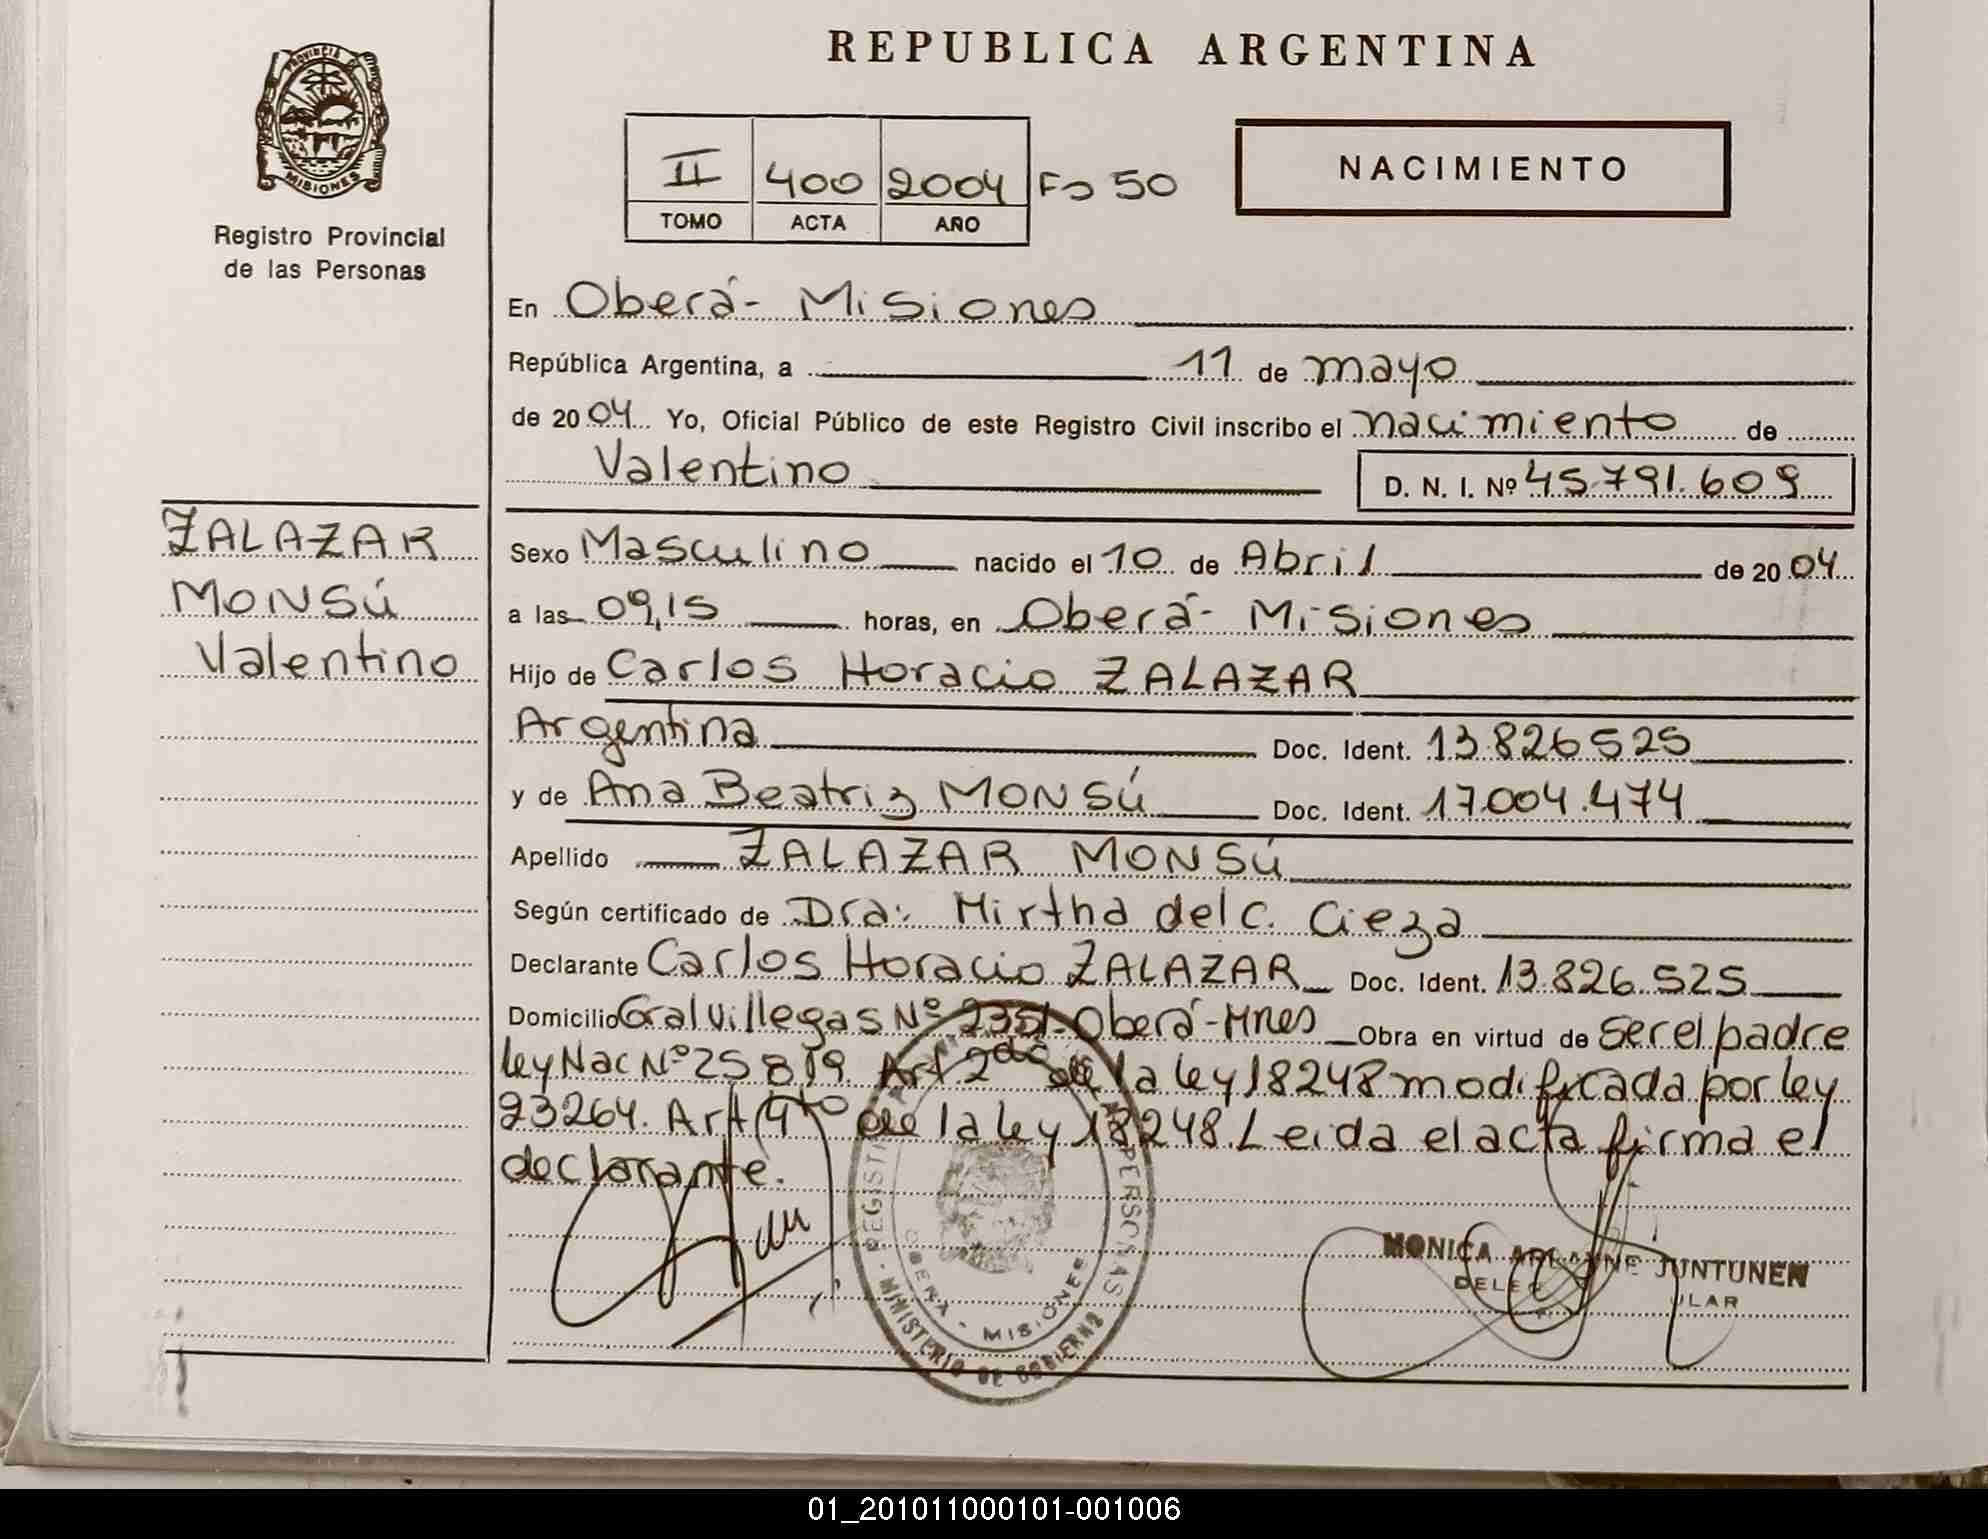 PROVINCIA DE
MISIONES
Registro Provincial
de las Personas
REPUBLICA ARGENTINA
II 400 2004 Fo 50
TOMO ACTA AÑO
NACIMIENTO
En Oberá - Misiones
República Argentina, a 11 de mayo
de 2004 Yo, Oficial Público de este Registro Civil inscribo el nacimiento de
Valentino D. N. I. Nº 45.791.609
ZALAZAR
MONSÚ
Valentino
Sexo Masculino nacido el 10 de Abril de 2004
a las 09,15 horas, en Oberá - Misiones
Hijo de Carlos Horacio ZALAZAR
Argentina Doc. Ident. 13.826525
y de Ana Beatriz MONSÚ Doc. Ident. 17.004.474
Apellido ZALAZAR MONSÚ
Según certificado de Dra: Mirtha del C. Cieza
Declarante Carlos Horacio ZALAZAR Doc. Ident. 13.826.525
Domicilio Gral Villegas Nº 2351 - Oberá - Mnes Obra en virtud de ser el padre
ley Nac Nº 25819. Art. 2do de la ley 18248 modificada por ley
23264. Art 4to de la ley 18248. Leida el acta firma el
declarante.
MONICA JUNTUNEN
OBERA - MISIONES
MINISTERIO DE GOBIERNO
PERSONAS
01_201011000101-001006